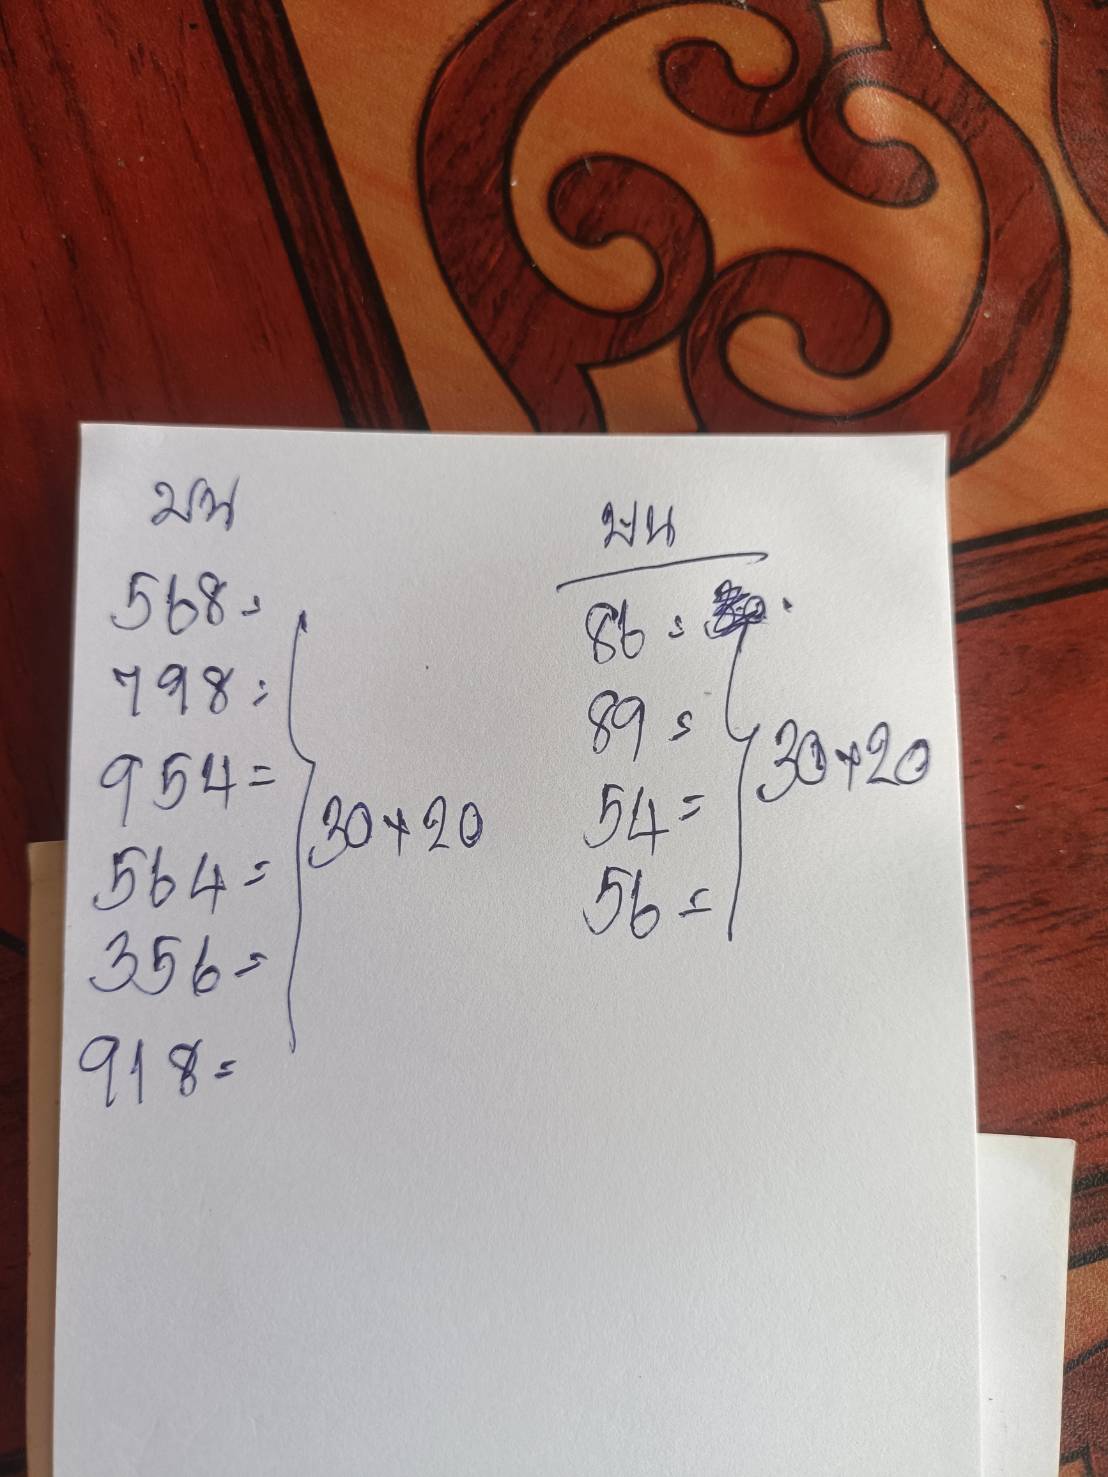 บน
568=
798=
954=
564=
356=
918=
30×20
บน
86=
89=
54=
56=
30×20